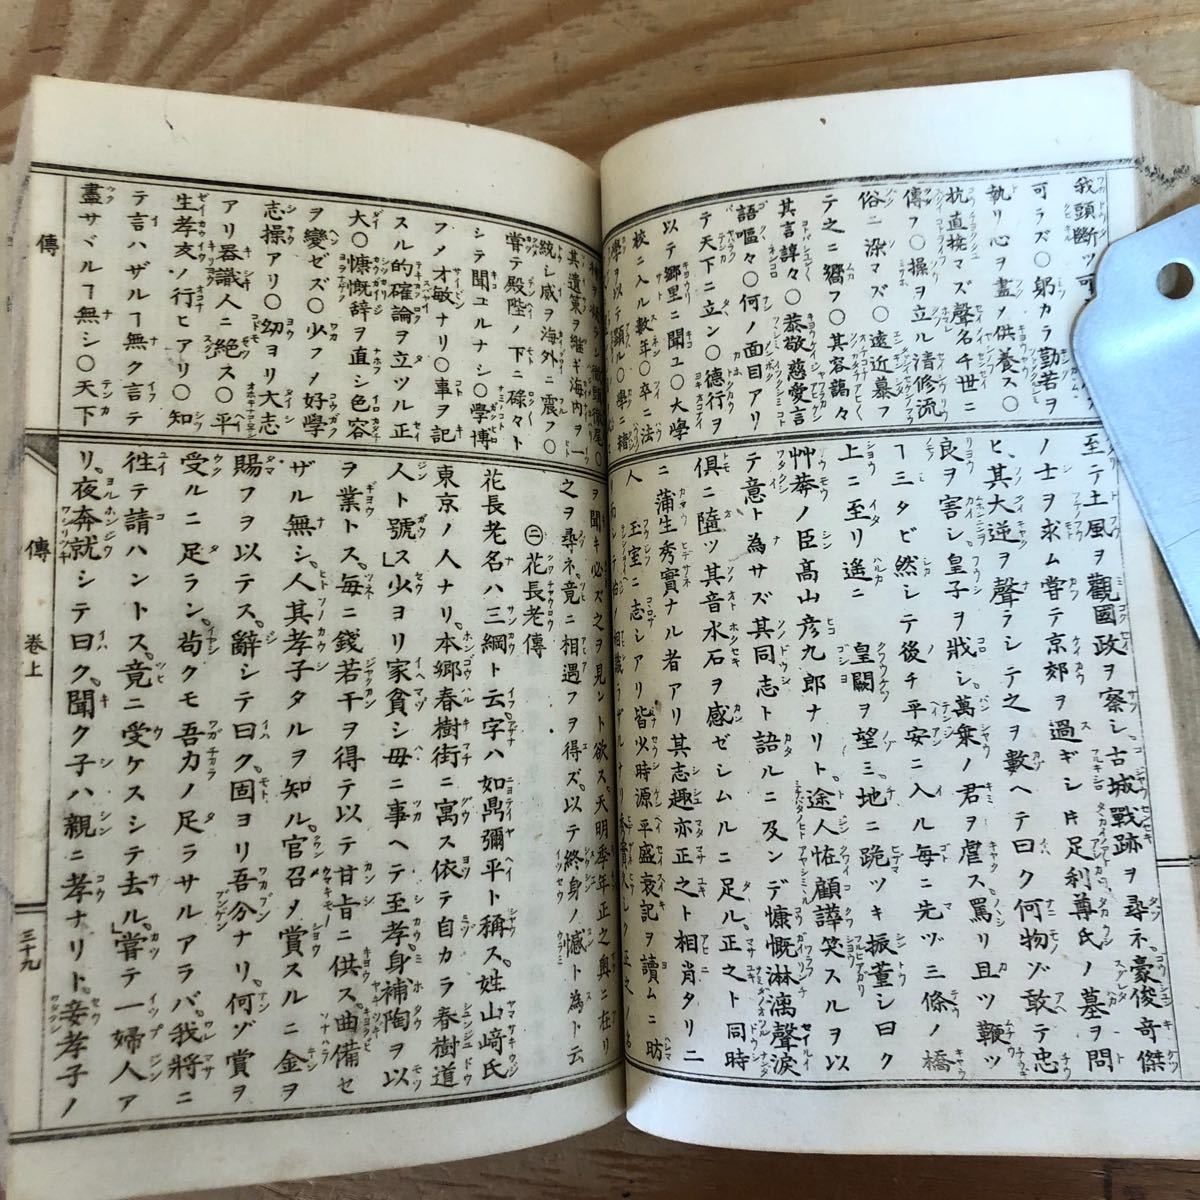 我頭斷ツ可
可ラズ〇躬カラ勤苦ヲ
執リ心ヲ盡ノ供養ス〇
抗直撓マズ聲名チ世ニ
傳フ〇操ヲ立ル清修流
俗ニ染マズ〇遠近慕フ
テ之ニ嚮フ〇其容藹々
其言諄々〇恭敬慈愛言
語嘔々〇何ノ面目アリ
テ天下ニ立ン〇德行ヲ
以テ郷里ニ聞ユ〇大學
校ニ入ル數年〇卒ニ法
學ヲ以テ顯ル〇學ニ
至テ土風ヲ觀國政ヲ察シ古城戰跡ヲ尋ネ豪俊奇傑
ノ士ヲ求ム嘗テ京郊ヲ過ギシ片足利尊氏ノ墓ヲ問
ヒ、其大逆ヲ聲ラシテ之ヲ數ヘテ曰ク何物ゾ敢テ忠
良ヲ害シ皇子ヲ戕シ萬乗ノ君ヲ虐ス罵リ且ツ鞭ツ
ヿ三タビ然シテ後チ平安ニ入ル毎ニ先ヅ三條ノ橋
上ニ至リ遙ニ 皇闕ヲ望ミ地ニ跪ツキ振董シ曰ク
艸莽ノ臣高山彦九郎ナリト途人怪顧譁笑スルヲ以
テ意ト為サズ其同志ト語ルニ及ンデ慷慨淋漓聲淚
倶ニ隨ツ其音水石ヲ感ゼシムルニ足ル。正之ト同時
ニ蒲生秀實ナル者アリ其志趣亦正之ト相肖タリ二
人 王室ニ志シアリ皆以時源平盛衰記ヲ讀ムニ昉
其遺業ヲ繼ギ海内ヲ一
統シ威ヲ海外ニ震フ〇
嘗テ殿陛ノ下ニ碌々ト
シテ聞ユルナシ〇學博
フノ才敏ナリ〇事ヲ記
スル的確論ヲ立ツル正
大〇慷慨辞ヲ直シ色容
ヲ變ゼズ〇少フノ好學
志操アリ〇幼ヨリ大志
アリ器識人ニ絶ス〇平
生孝友ノ行ヒアリ〇知
テ言ハザルヿ無ク言テ
盡サヾルヿ無シ〇天下
ヲ聞キ必ズ之ヲ見ント欲ス。天明季年正之輿ニ在リ
之ヲ尋ネ。竟ニ相遇フヲ得ズ。以テ終身ノ憾ト為ト云
㊁花長老傳
花長老名ハ三綱ト云字ハ如鼎彌平ト稱ス。姓山﨑氏
東京ノ人ナリ。本郷春樹街ニ寓ス依テ自カラ春樹道
人ト號ス」少ヨリ家貧シ毋ニ事ヘテ至孝身補陶ヲ以
ヲ業トス。毎ニ錢若干ヲ得テ以テ甘旨ニ供ス。曲備セ
ザル無シ。人其孝子タルヲ知ル。官召メ賞スルニ金ヲ
賜フヲ以テス。辭シテ曰ク。固ヨリ吾分ナリ。何ゾ賞ヲ
受ルニ足ラン。苟クモ吾力ノ足ラサルアラバ。我將ニ
往テ請ハントス。竟ニ受ケスシテ去ル」嘗テ一婦人ア
リ。夜奔就シテ曰ク。聞ク子ハ親ニ孝ナリト。妾孝子ノ
傳
傳
卷上
三十九